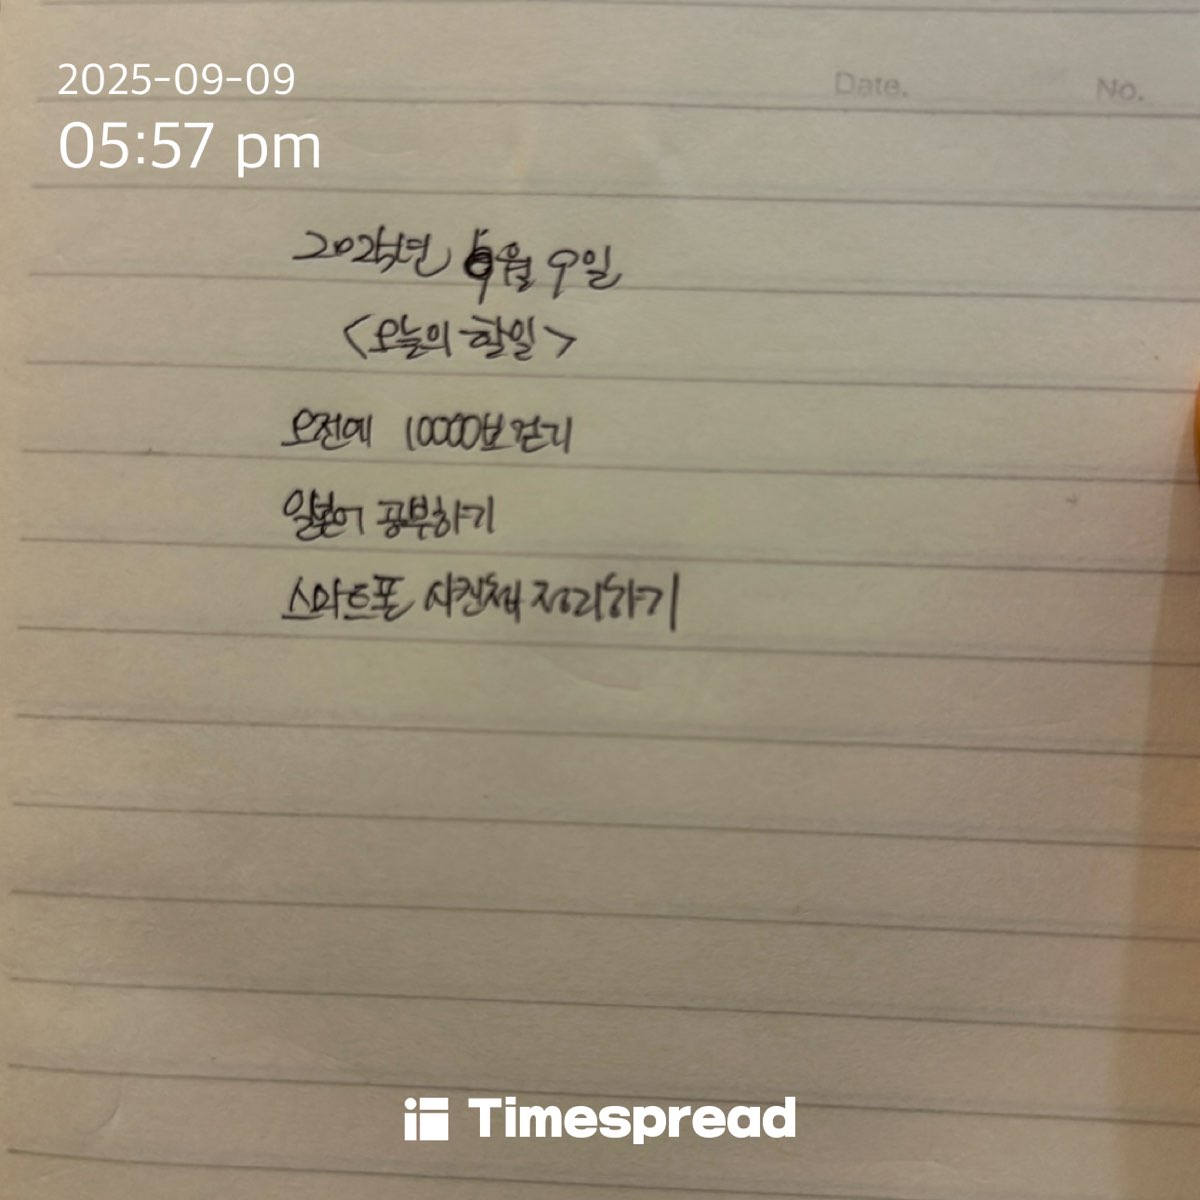 2025-09-09
05:57 pm
Date. No.
2025년 9월 9일
<오늘의 할일>
오전에 10000보 걷기
일본어 공부하기
스마트폰 사진첩 정리하기
Timespread